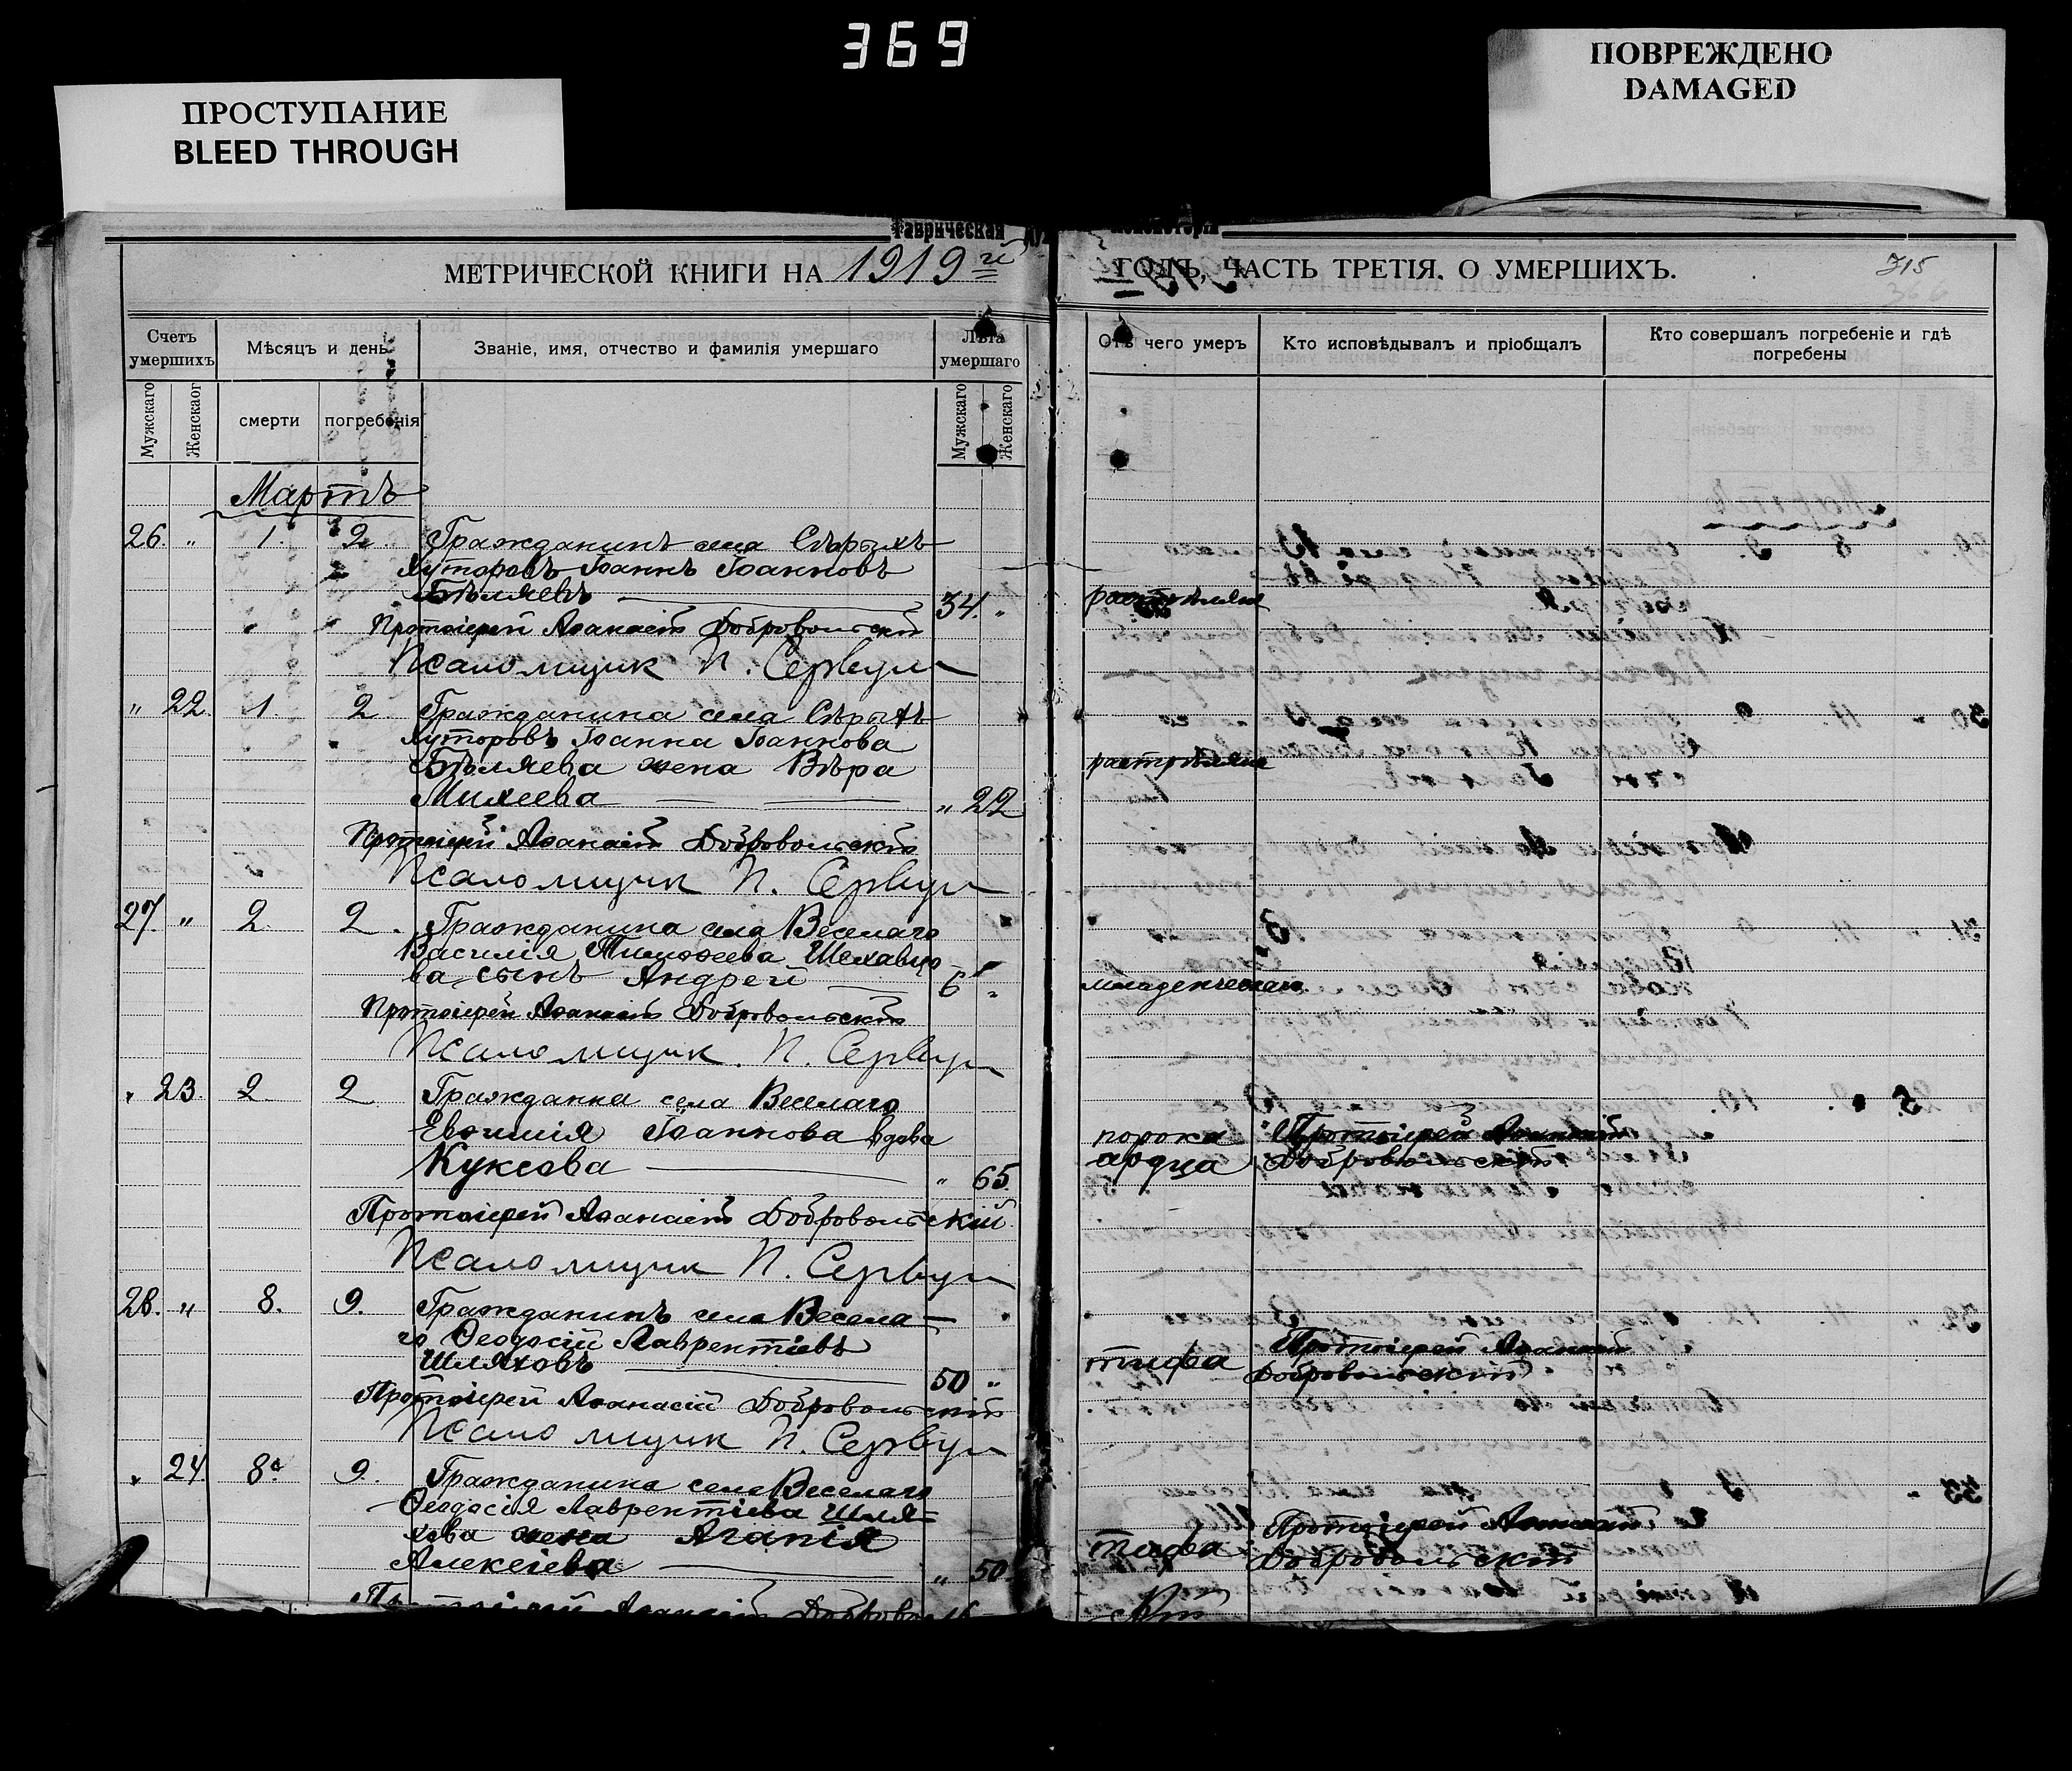 369
ПРОСТУПАНИЕ
BLEED THROUGH
ПОВРЕЖДЕНО
DAMAGED
Таврическая
МЕТРИЧЕСКОЙ КНИГИ НА 1919й ГОДЪ, ЧАСТЬ ТРЕТІЯ. О УМЕРШИХЪ.
315
366
Счетъ умершихъ
Мѣсяцъ и день
Званіе, имя, отчество и фамилія умершаго
Лѣта умершаго
Отъ чего умеръ
Кто исповѣдывалъ и пріобщалъ
Кто совершалъ погребеніе и гдѣ погребены
Мужскаго
Женскаог
смерти
погребенія
Мужскаго
Женскаго
Мартъ
26. " 1. 2. Гражданинъ села Сѣрыхъ
Хуторовъ Іоаннъ Іоанновъ
Бѣляевъ 34. " разстрѣляна
Протоіерей Аѳанасій Добровольскій
Псаломщик П. Сервул
" 22. 1. 2. Гражданина села Сѣрыхъ
Хуторовъ Іоанна Іоаннова
Бѣляева жена Вѣра растрѣляна
Михеева " 22
Протоіерей Аѳанасій Добровольскій
Псаломщик П. Сервул
27. " 2. 2. Гражданина села Веселаго
Василія Тимоѳеева Шелавцо-
ва сынъ Андрей 6 " младенческаго
Протоіерей Аѳанасій Добровольскій
Псаломщик П. Сервул
" 23. 2. 2 Гражданка села Веселаго
Евѳимія Іоаннова вдова порока Протоіерей Аѳанасій
Куксова " 65 сердца Добровольскій
Протоіерей Аѳанасій Добровольскій
Псаломщик П. Сервул
28. " 8. 9. Гражданинъ села Весела-
го Ѳеодосій Лаврентіевъ Протоіерей Аѳанасій
Шляховъ 50 " тифа Добровольскій
Протоіерей Аѳанасій Добровольскій
Псаломщик П. Сервул
" 24 8. 9. Гражданина села Веселаго
Ѳеодосія Лаврентіева Шля-
хова жена Агапія Протоіерей Аѳанасій
Алексіева " 50. тифа Добровольскій
Протоіерей Аѳанасій Доброволь-
скій